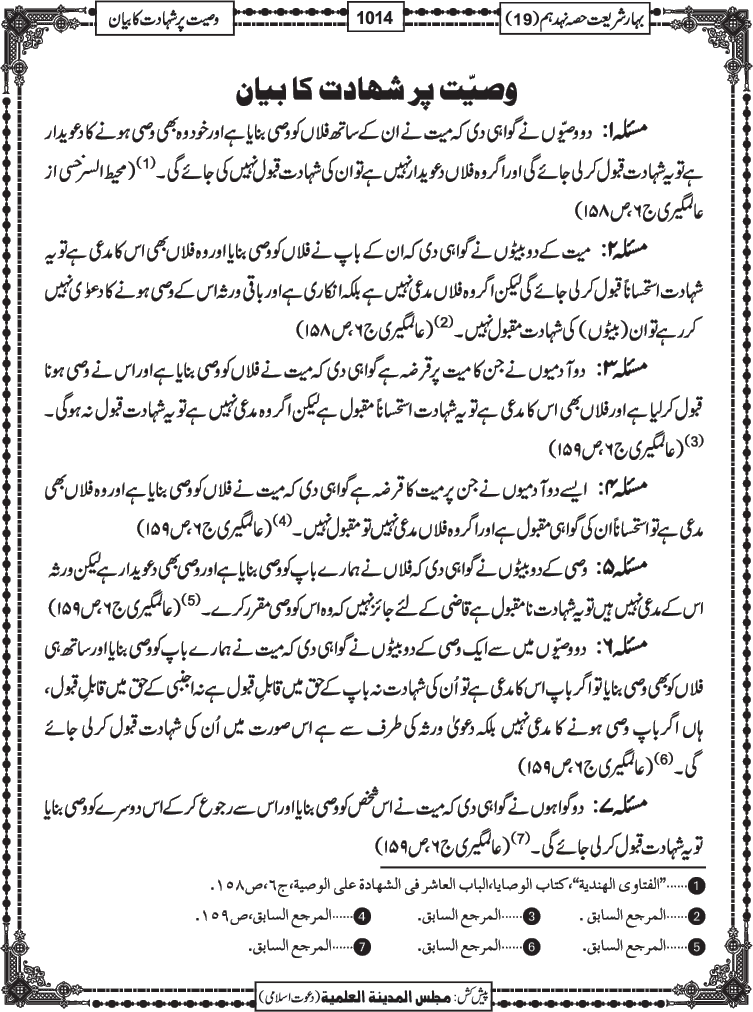 بہارِ شریعت حصہ نہدہم (19)
1014
وصیت پر شہادت کا بیان
وصیّت پر شہادت کا بیان
مسئلہ ۱: دو وصیّوں نے گواہی دی کہ میت نے ان کے ساتھ فلاں کو وصی بنایا ہے اور خود وہ بھی وصی ہونے کا دعویدار
ہے تو یہ شہادت قبول کر لی جائے گی اور اگر وہ فلاں دعویدار نہیں ہے تو ان کی شہادت قبول نہیں کی جائے گی۔(1) (محیط السرخسی از
عالمگیری ج۶، ص۱۵۸)
مسئلہ ۲: میت کے دو بیٹوں نے گواہی دی کہ ان کے باپ نے فلاں کو وصی بنایا اور وہ فلاں بھی اس کا مدعی ہے تو یہ
شہادت استحساناً قبول کر لی جائے گی لیکن اگر وہ فلاں مدعی نہیں ہے بلکہ انکاری ہے اور باقی ورثہ اس کے وصی ہونے کا دعوٰی نہیں
کر رہے تو ان (بیٹوں) کی شہادت مقبول نہیں۔(2) (عالمگیری ج۶، ص۱۵۸)
مسئلہ ۳: دو آدمیوں نے جن کا میت پر قرضہ ہے گواہی دی کہ میت نے فلاں کو وصی بنایا ہے اور اس نے وصی ہونا
قبول کر لیا ہے اور فلاں بھی اس کا مدعی ہے تو یہ شہادت استحساناً مقبول ہے لیکن اگر وہ مدعی نہیں ہے تو یہ شہادت قبول نہ ہوگی۔
(3) (عالمگیری ج۶، ص۱۵۹)
مسئلہ ۴: ایسے دو آدمیوں نے جن پر میت کا قرضہ ہے گواہی دی کہ میت نے فلاں کو وصی بنایا ہے اور وہ فلاں بھی
مدعی ہے تو استحساناً ان کی گواہی مقبول ہے اور اگر وہ فلاں مدعی نہیں تو مقبول نہیں۔(4) (عالمگیری ج۶، ص۱۵۹)
مسئلہ ۵: وصی کے دو بیٹوں نے گواہی دی کہ فلاں نے ہمارے باپ کو وصی بنایا ہے اور وصی بھی دعویدار ہے لیکن ورثہ
اس کے مدعی نہیں ہیں تو یہ شہادت نا مقبول ہے قاضی کے لئے جائز نہیں کہ وہ اس کو وصی مقرر کرے۔(5) (عالمگیری ج۶، ص۱۵۹)
مسئلہ ۶: دو وصیّوں میں سے ایک وصی کے دو بیٹوں نے گواہی دی کہ میت نے ہمارے باپ کو وصی بنایا اور ساتھ ہی
فلاں کو بھی وصی بنایا تو اگر باپ اس کا مدعی ہے تو اُن کی شہادت نہ باپ کے حق میں قابلِ قبول ہے نہ اجنبی کے حق میں قابلِ قبول،
ہاں اگر باپ وصی ہونے کا مدعی نہیں بلکہ دعویٰ ورثہ کی طرف سے ہے اس صورت میں اُن کی شہادت قبول کر لی جائے
گی۔(6) (عالمگیری ج۶، ص۱۵۹)
مسئلہ ۷: دو گواہوں نے گواہی دی کہ میت نے اس شخص کو وصی بنایا اور اس سے رجوع کر کے اس دوسرے کو وصی بنایا
تو یہ شہادت قبول کر لی جائے گی۔(7) (عالمگیری ج۶، ص۱۵۹)
1 ......"الفتاوی الھندیة"، کتاب الوصایا، الباب العاشر فی الشهادة علی الوصیة، ج۶، ص۱۵۸.
2 ......المرجع السابق . 3 ......المرجع السابق. 4 ......المرجع السابق، ص۱۵۹.
5 ......المرجع السابق. 6 ......المرجع السابق. 7 ......المرجع السابق.
پیش کش: مجلس المدینة العلمیة (دعوت اسلامی)